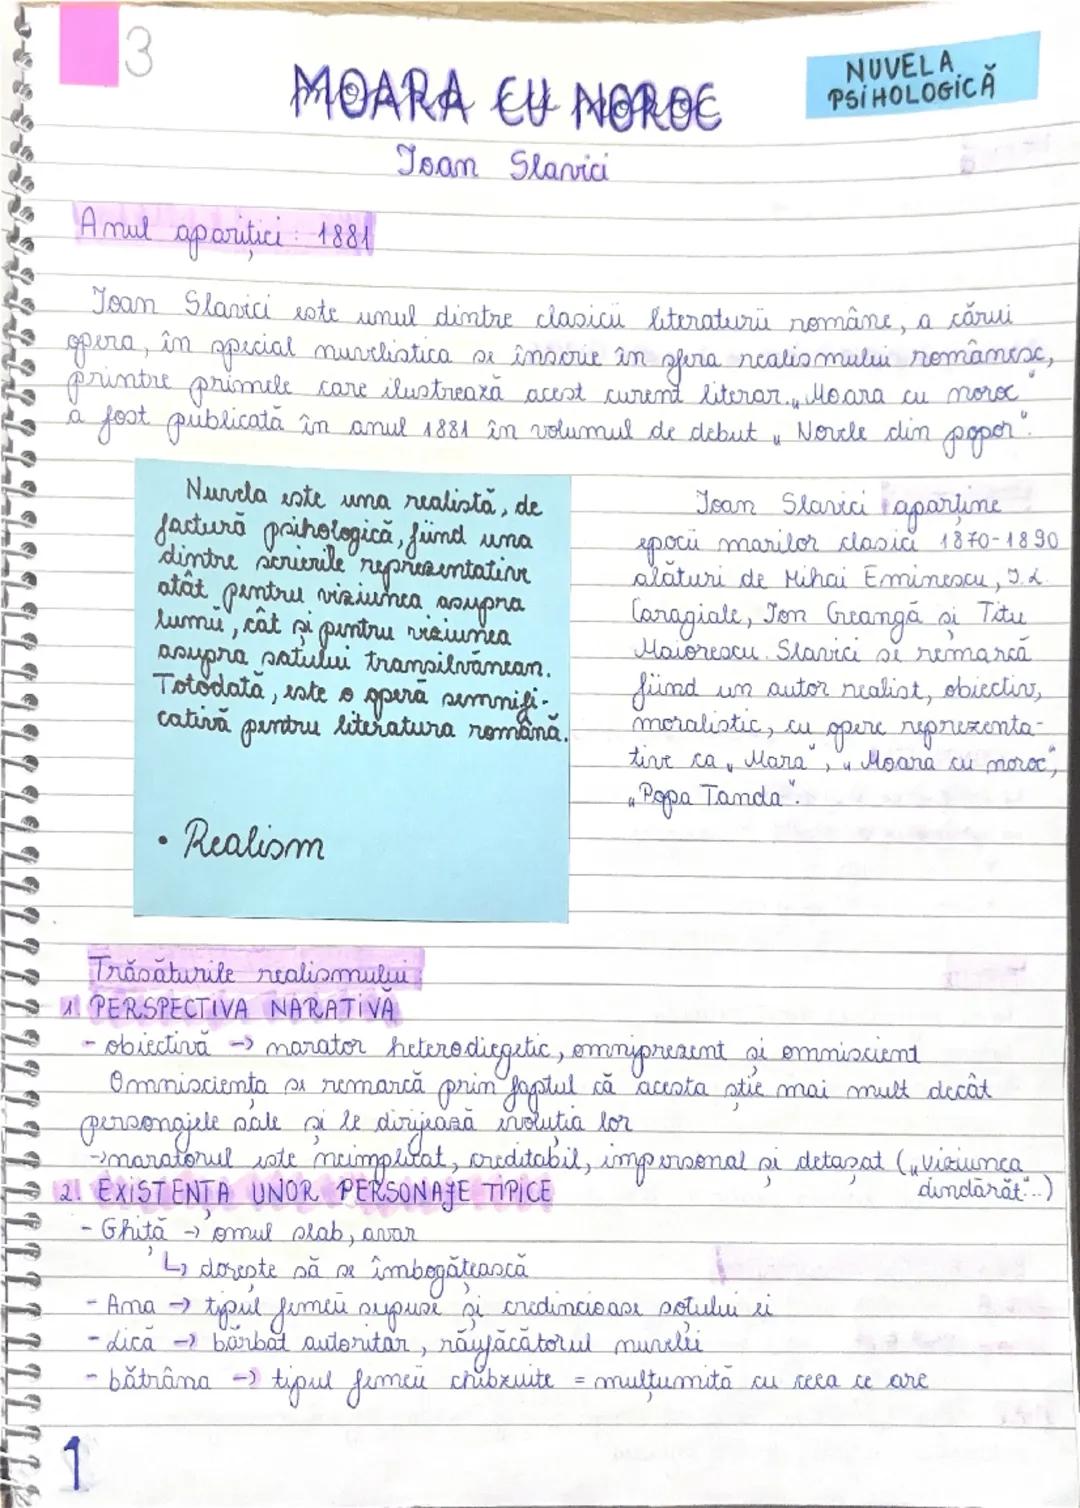 3
MOARA CU NOROC
NUVELA
PSIHOLOGICĂ
Ioan Slavici
Anul apariției : 1881
Ioan Slavici este unul dintre clasicii literaturii române, a cărui
opera, în special nuvelistica se înscrie în sfera realismului românesc,
printre primele care ilustrează acest curent literar. „Moara cu noroc"
a fost publicată în anul 1881 în volumul de debut „Novele din popor".
Nuvela este una realistă, de
factură psihologică, fiind una
dintre scrierile reprezentative
atât pentru viziunea asupra
lumii, cât și pentru viziunea
asupra satului transilvănean.
Totodată, este o operă semnifi-
cativă pentru literatura română.
• Realism
Ioan Slavici aparține
epocii marilor clasici 1870-1890
alături de Mihai Eminescu, I.L.
Caragiale, Ion Creangă și Titu
Maiorescu. Slavici se remarcă
fiind un autor realist, obiectiv,
moralistic, cu opere reprezenta-
tive ca „Mara", „Moara cu noroc",
„Popa Tanda".
Trăsăturile realismului:
1. PERSPECTIVA NARATIVĂ
- obiectivă → narator heterodiegetic, omniprezent și omniscient
Omnisciența se remarcă prin faptul că acesta știe mai mult decât
personajele sale și le dirijează evoluția lor
→ naratorul este neimplicat, creditabil, impersonal și detașat („Viziunea
dindărăt"...)
2. EXISTENȚA UNOR PERSONAJE TIPICE
- Ghiță → omul slab, avar
↳ dorește să se îmbogățească
- Ana → tipul femeii supuse și credincioase soțului ei
- Lică → bărbat autoritar, răufăcătorul nuvelei
- bătrâna → tipul femeii chibzuite = mulțumită cu ceea ce are
1